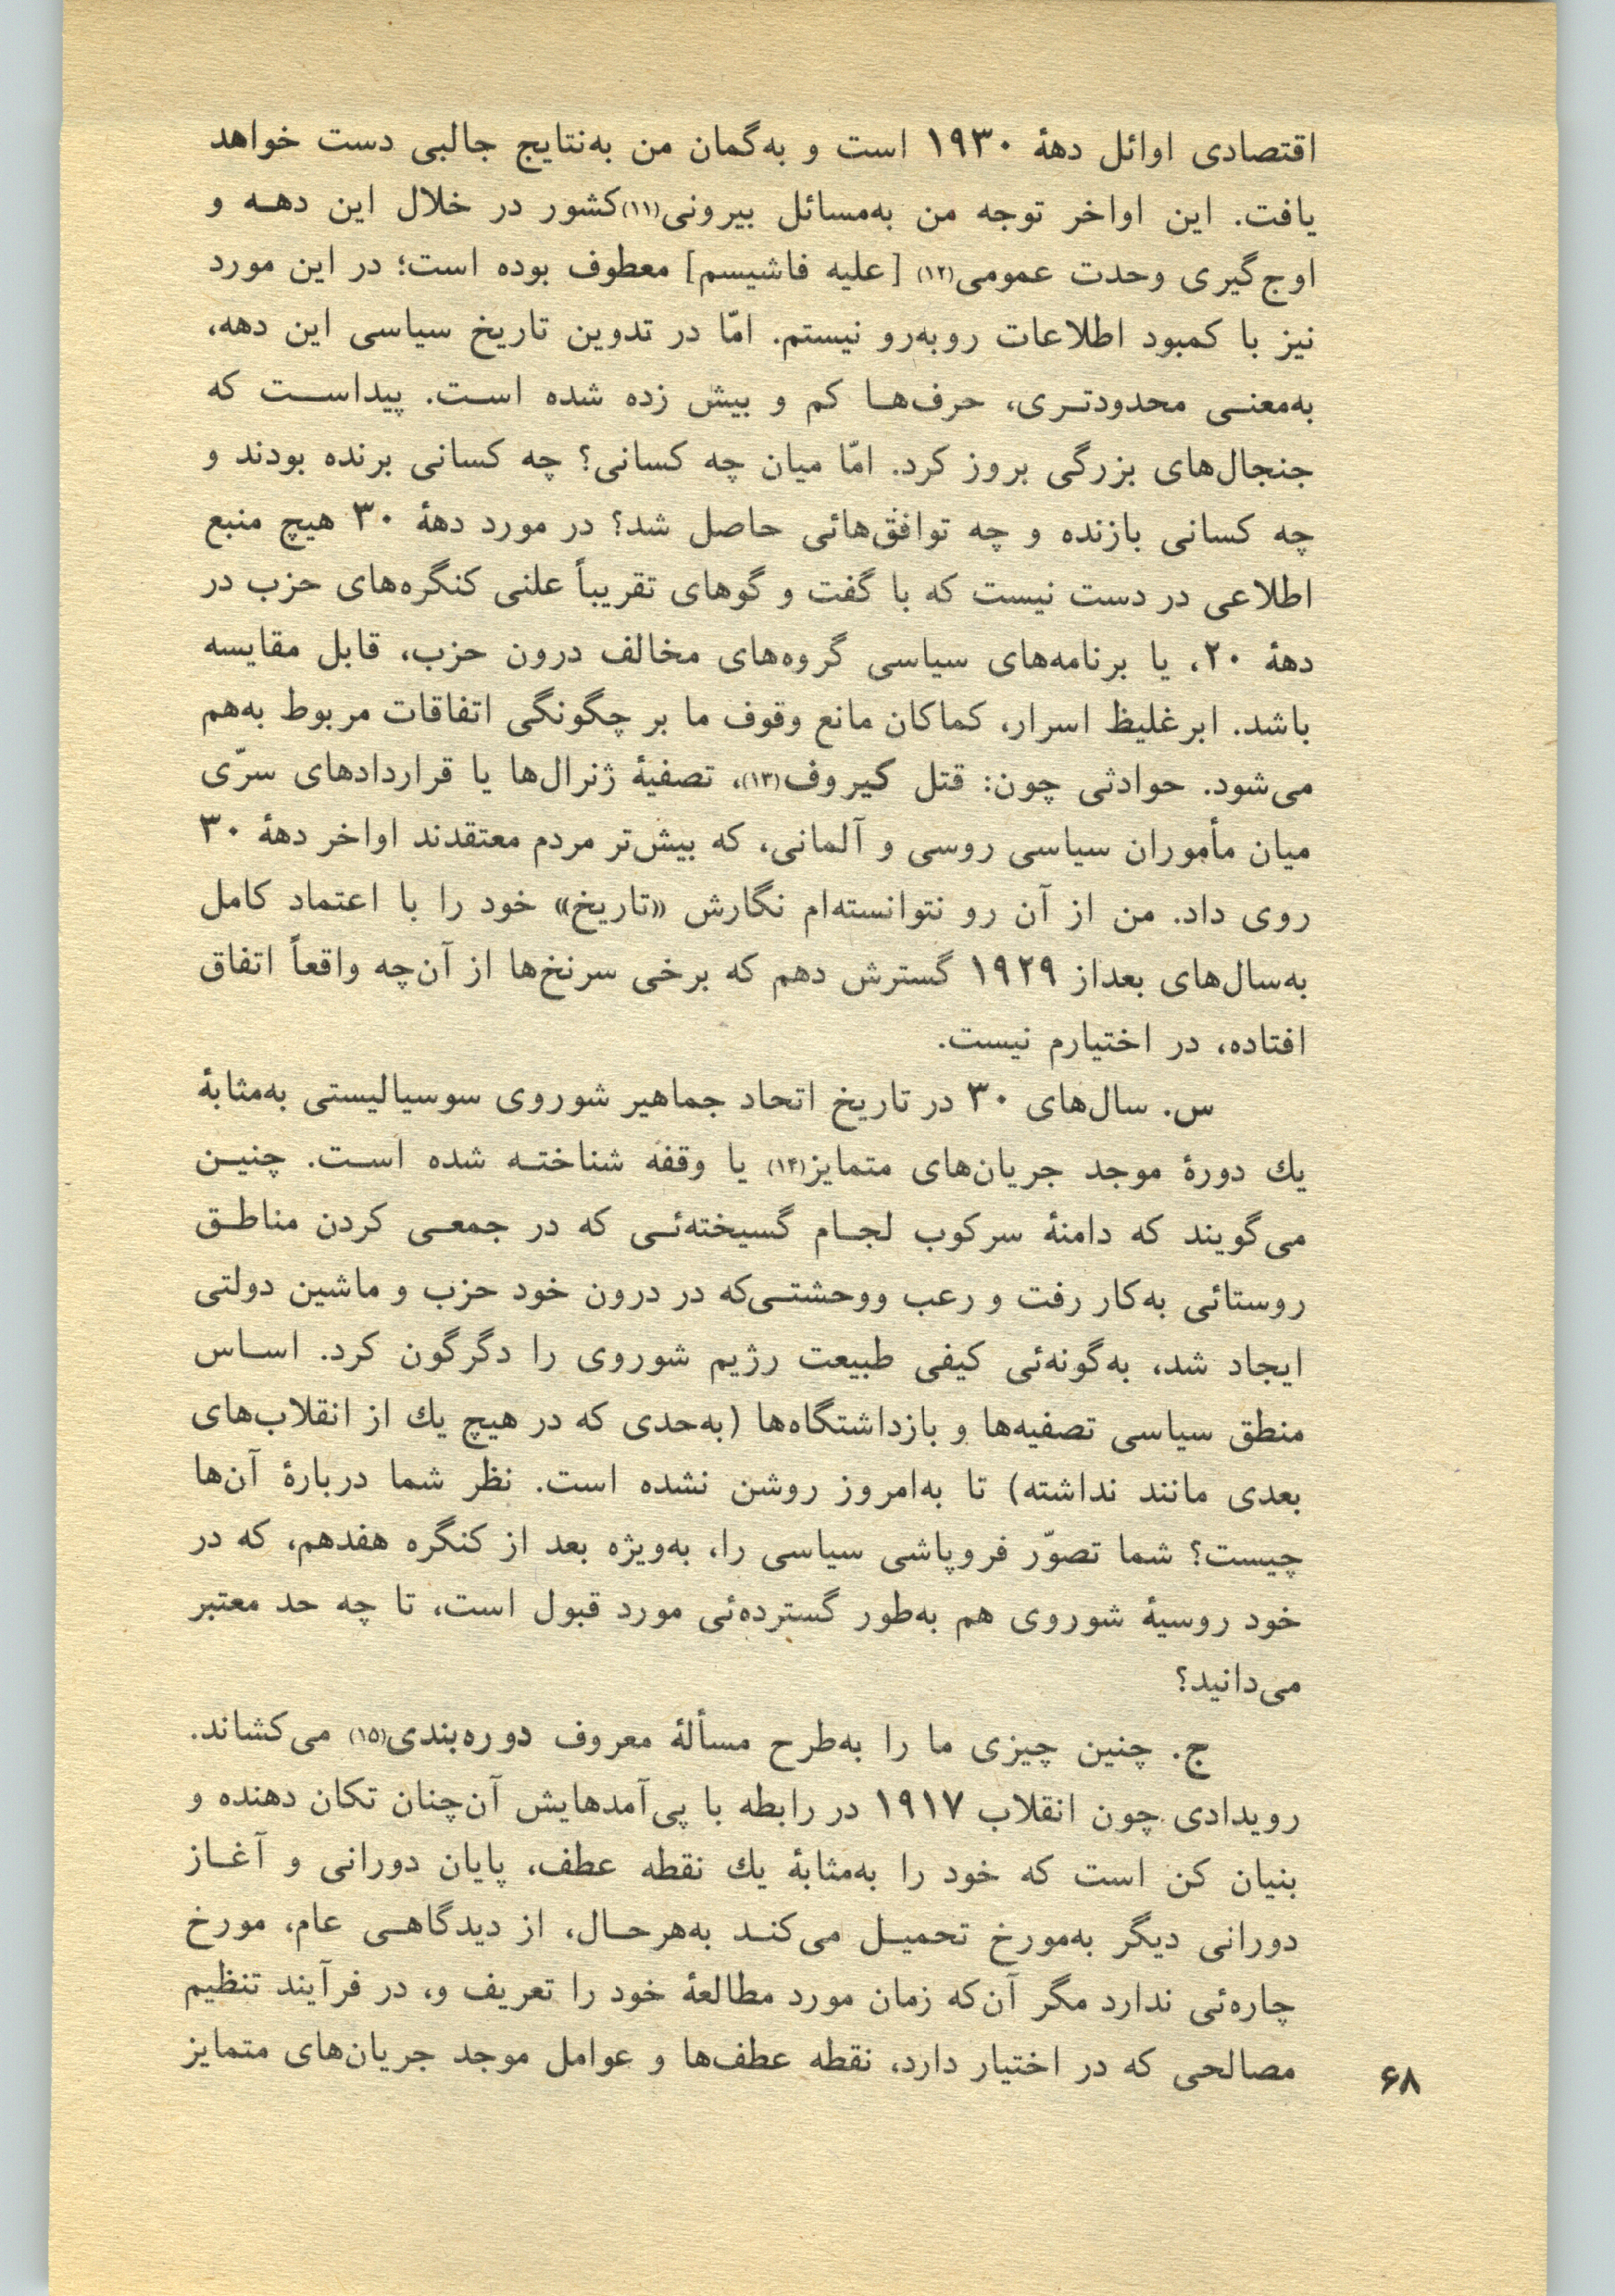 اقتصادی اوائل دههٔ ۱۹۳۰ است و به‌گمان من به‌نتایج جالبی دست خواهد
یافت. این اواخر توجه من به‌مسائل بیرونی(۱۱)کشور در خلال این دهه و
اوج‌گیری وحدت عمومی(۱۲) [علیه فاشیسم] معطوف بوده است؛ در این مورد
نیز با کمبود اطلاعات روبه‌رو نیستم. امّا در تدوین تاریخ سیاسی این دهه،
به‌معنی محدودتری، حرف‌ها کم و بیش زده شده است. پیداست که
جنجال‌های بزرگی بروز کرد. امّا میان چه کسانی؟ چه کسانی برنده بودند و
چه کسانی بازنده و چه توافق‌هائی حاصل شد؟ در مورد دههٔ ۳۰ هیچ منبع
اطلاعی در دست نیست که با گفت و گوهای تقریباً علنی کنگره‌های حزب در
دههٔ ۲۰، یا برنامه‌های سیاسی گروه‌های مخالف درون حزب، قابل مقایسه
باشد. ابرغلیظ اسرار، کماکان مانع وقوف ما بر چگونگی اتفاقات مربوط به‌هم
می‌شود. حوادثی چون: قتل کیروف(۱۳)، تصفیهٔ ژنرال‌ها یا قراردادهای سرّی
میان مأموران سیاسی روسی و آلمانی، که بیش‌تر مردم معتقدند اواخر دههٔ ۳۰
روی داد. من از آن رو نتوانسته‌ام نگارش «تاریخ» خود را با اعتماد کامل
به‌سال‌های بعداز ۱۹۲۹ گسترش دهم که برخی سرنخ‌ها از آن‌چه واقعاً اتفاق
افتاده، در اختیارم نیست.
س. سال‌های ۳۰ در تاریخ اتحاد جماهیر شوروی سوسیالیستی به‌مثابهٔ
یك دورهٔ موجد جریان‌های متمایز(۱۴) یا وقفه شناخته شده است. چنین
می‌گویند که دامنهٔ سرکوب لجام گسیخته‌ئی که در جمعی کردن مناطق
روستائی به‌کار رفت و رعب ووحشتی‌که در درون خود حزب و ماشین دولتی
ایجاد شد، به‌گونه‌ئی کیفی طبیعت رژیم شوروی را دگرگون کرد. اساس
منطق سیاسی تصفیه‌ها و بازداشتگاه‌ها (به‌حدی که در هیچ یك از انقلاب‌های
بعدی مانند نداشته) تا به‌امروز روشن نشده است. نظر شما دربارهٔ آن‌ها
چیست؟ شما تصوّر فروپاشی سیاسی را، به‌ویژه بعد از کنگره هفدهم، که در
خود روسیهٔ شوروی هم به‌طور گسترده‌ئی مورد قبول است، تا چه حد معتبر
می‌دانید؟
ج. چنین چیزی ما را به‌طرح مسألهٔ معروف دوره‌بندی(۱۵) می‌کشاند.
رویدادی چون انقلاب ۱۹۱۷ در رابطه با پی‌آمدهایش آن‌چنان تکان دهنده و
بنیان کن است که خود را به‌مثابهٔ یك نقطه عطف، پایان دورانی و آغاز
دورانی دیگر به‌مورخ تحمیل می‌کند به‌هرحال، از دیدگاهی عام، مورخ
چاره‌ئی ندارد مگر آن‌که زمان مورد مطالعهٔ خود را تعریف و، در فرآیند تنظیم
مصالحی که در اختیار دارد، نقطه عطف‌ها و عوامل موجد جریان‌های متمایز
۶۸